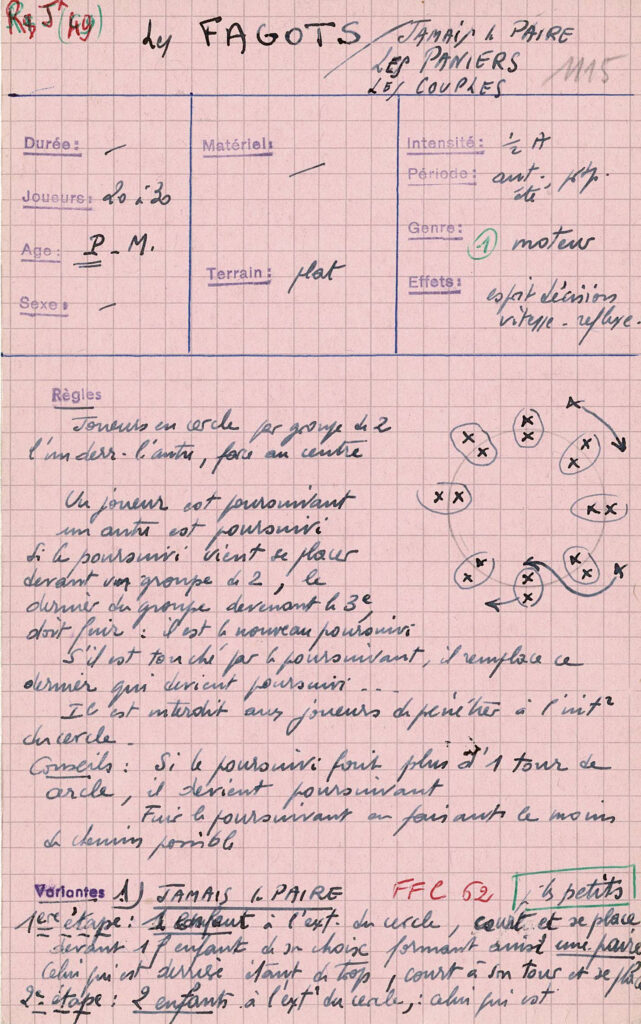 Rg J^x (49)
Les FAGOTS / JAMAIS la PAIRE
LES PANIERS
LES COUPLES
1115
Durée : —
Joueurs : 20 à 30
Age : P - M.
Sexe : —
Matériel : —
Terrain : plat
Intensité : ½ A
Période : aut. ptp.
été
Genre : 1 moteur
Effets : esprit décision
vitesse - reflexe -
Règles
Joueurs en cercle par groupe de 2
l'un derr. l'autre, face au centre
Un joueur est poursuivant
un autre est poursuivi
Si le poursuivi vient se placer
devant un groupe de 2, le
dernier du groupe devenant le 3e,
doit fuir : il est le nouveau poursuivi
S'il est touché par le poursuivant, il remplace ce
dernier qui devient poursuivi ...
Il est interdit aux joueurs de pénétrer à l'int^r
du cercle -
Conseils : Si le poursuivi fait plus d'1 tour de
cercle, il devient poursuivant
Fuir le poursuivant en faisant le moins
de chemin possible
Variantes 1) JAMAIS la PAIRE FFC 62 / les petits
1ère étape : 1 enfant à l'ext. du cercle, court et se place
devant 1 enfant de son choix formant ainsi une paire
Celui qui est derrière étant de trop, court à son tour et se place
2e étape : 2 enfants à l'ext^r du cercle, : celui qui est